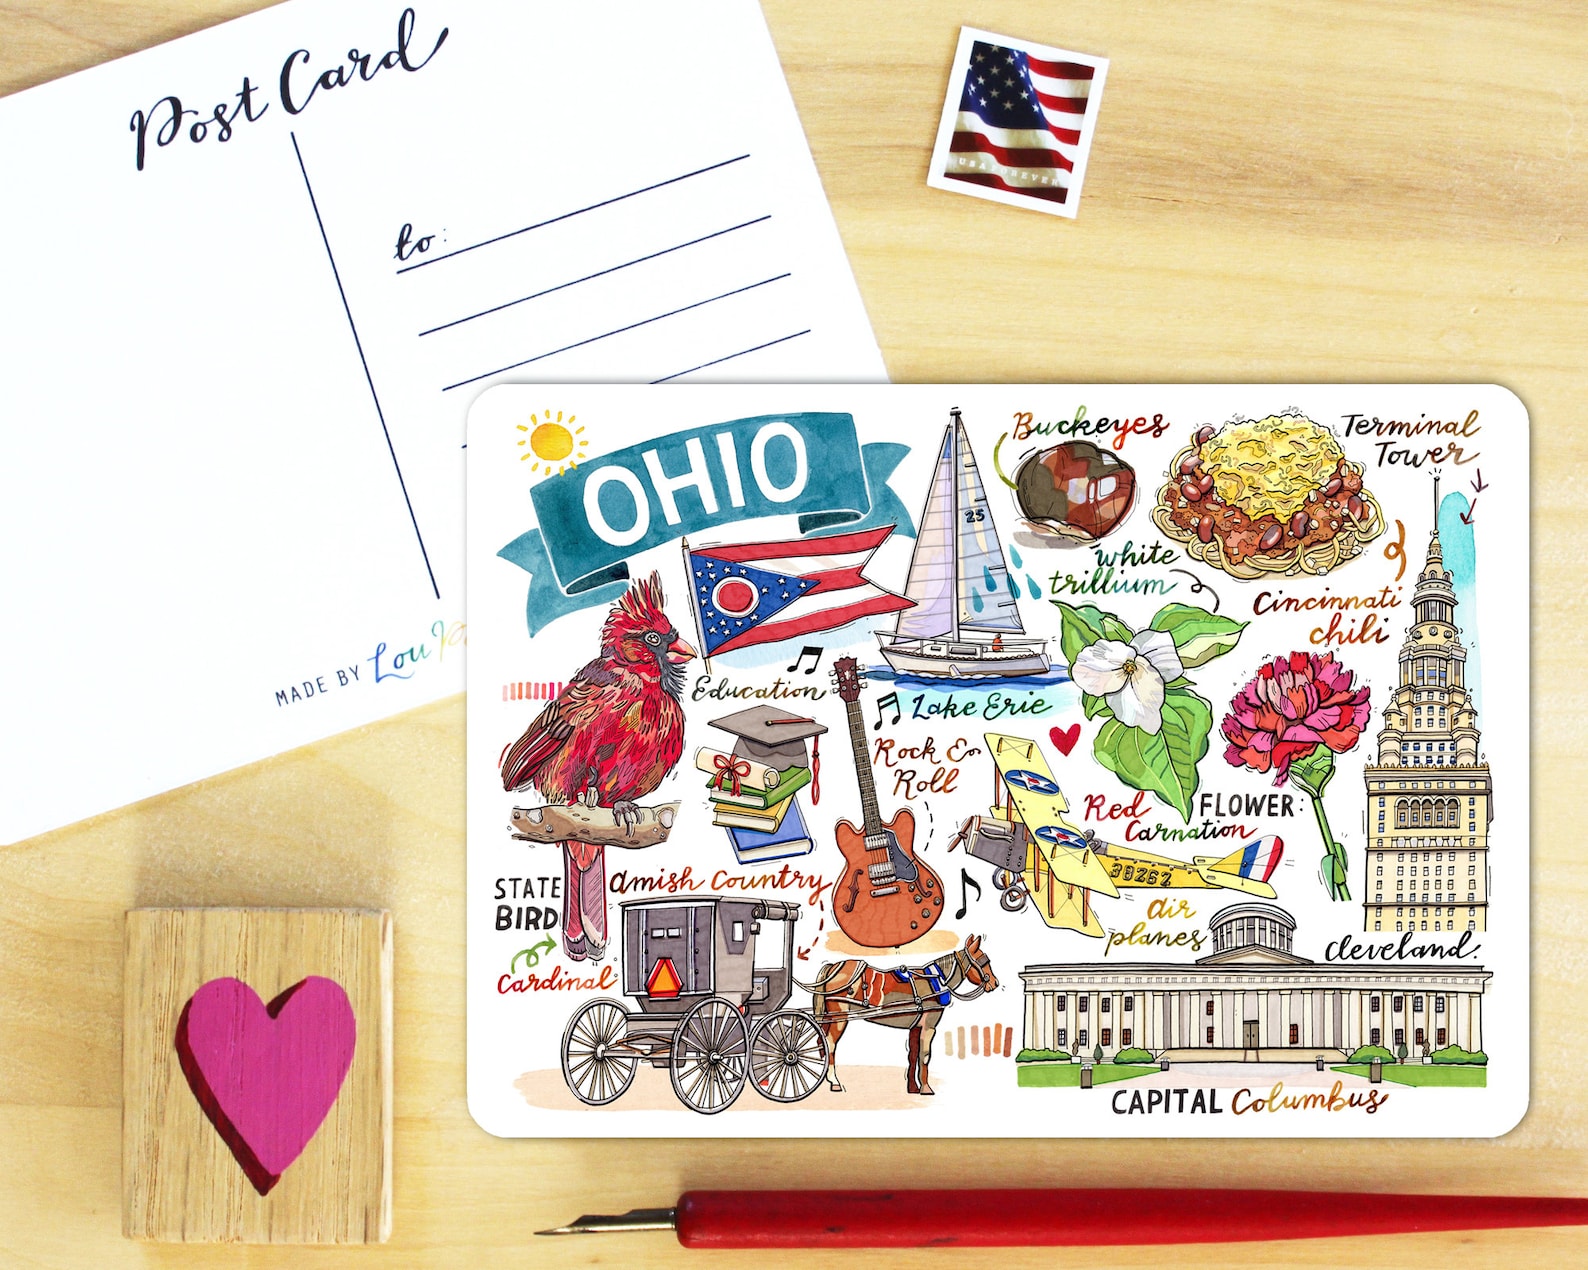 Post Card
to:
MADE BY Lou P
USA FOREVER
OHIO
25
Buckeyes
Terminal
Tower
white
trillium
Cincinnati
chili
Education
Lake Erie
Rock &
Roll
Red
Carnation
FLOWER:
38262
STATE
BIRD
Cardinal
Amish Country
air
planes
Cleveland.
CAPITAL Columbus